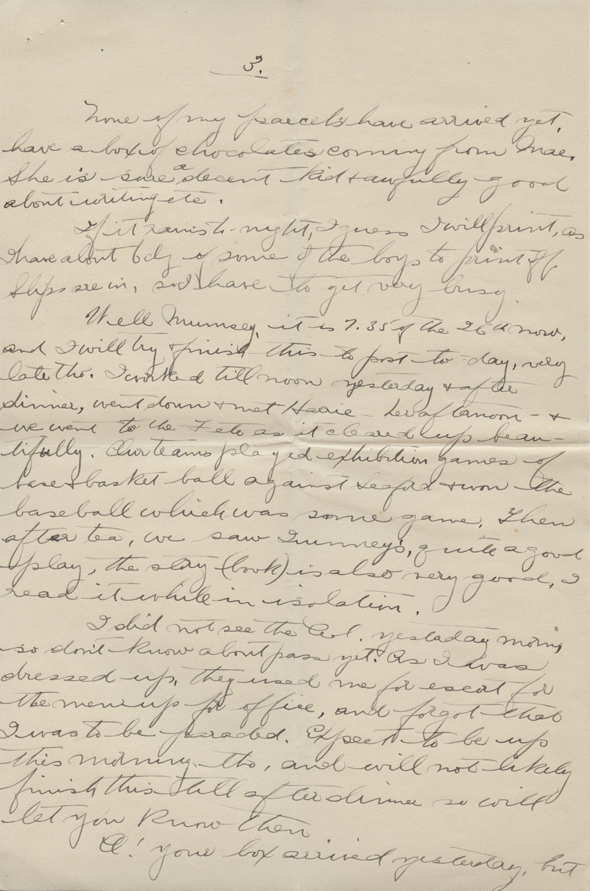 3.
None of my parcels have arrived yet,
have a box of chocolates coming from Mae.
She is sure a decent kid & awfully good
about writing etc.
If it rains to-night, I guess I will print, as
I have about 6 dz of some of the boys to print off,
Slips are in, so I have to get very busy.
Well Mumsey, it is 7.35 of the 26th now,
and I will try & finish this to post to-day, very
late tho. I worked till noon yesterday & after
dinner, went down & met - her afternoon - &
we went to the Fete as it cleared up beau-
tifully. Our teams played exhibition games of
base & basket ball against & won the
baseball which was some game. Then
after tea, we saw quite a good
play, the story (book) is also very good, I
read it while in isolation.
I did not see the Col. yesterday morning
so don't know about pass yet. As I was
dressed up, they used me for escort for
the men up for office, and forgot that
I was to be paraded. Expect to be up
this morning tho, and will not likely
finish this till after dinner so will
let you know then
O! your box arrived yesterday, but